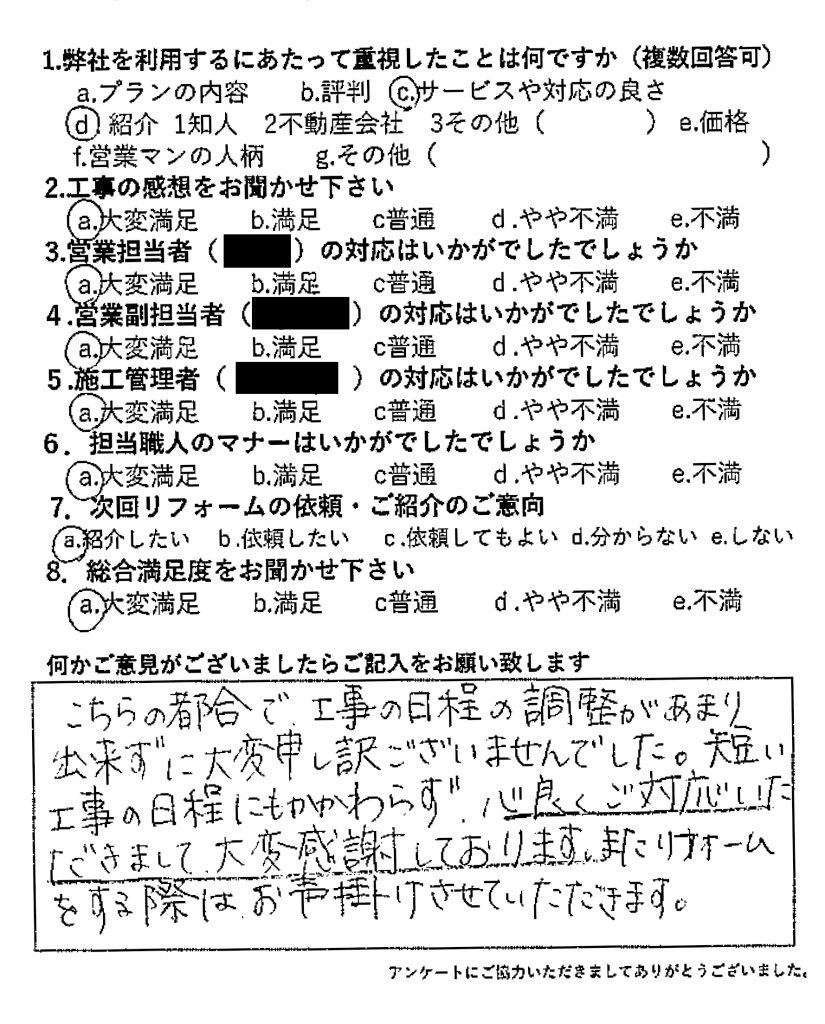 1.弊社を利用するにあたって重視したことは何ですか（複数回答可）
a.プランの内容　b.評判　c.サービスや対応の良さ
d.紹介　1知人　2不動産会社　3その他（　　　）　e.価格
f.営業マンの人柄　g.その他（　　　）
2.工事の感想をお聞かせ下さい
a.大変満足　b.満足　c普通　d.やや不満　e.不満
3.営業担当者（　　　）の対応はいかがでしたでしょうか
a.大変満足　b.満足　c普通　d.やや不満　e.不満
4.営業副担当者（　　　）の対応はいかがでしたでしょうか
a.大変満足　b.満足　c普通　d.やや不満　e.不満
5.施工管理者（　　　）の対応はいかがでしたでしょうか
a.大変満足　b.満足　c普通　d.やや不満　e.不満
6. 担当職人のマナーはいかがでしたでしょうか
a.大変満足　b.満足　c普通　d.やや不満　e.不満
7. 次回リフォームの依頼・ご紹介のご意向
a.紹介したい　b.依頼したい　c.依頼してもよい　d.分からない　e.しない
8. 総合満足度をお聞かせ下さい
a.大変満足　b.満足　c普通　d.やや不満　e.不満
何かご意見がございましたらご記入をお願い致します
こちらの都合で、工事の日程の調整があまり
出来ずに大変申し訳ございませんでした。短い
工事の日程にもかかわらず、心良くご対応いた
だきまして、大変感謝しております。またリフォーム
をする際は、お声掛けさせていただきます。
アンケートにご協力いただきましてありがとうございました。